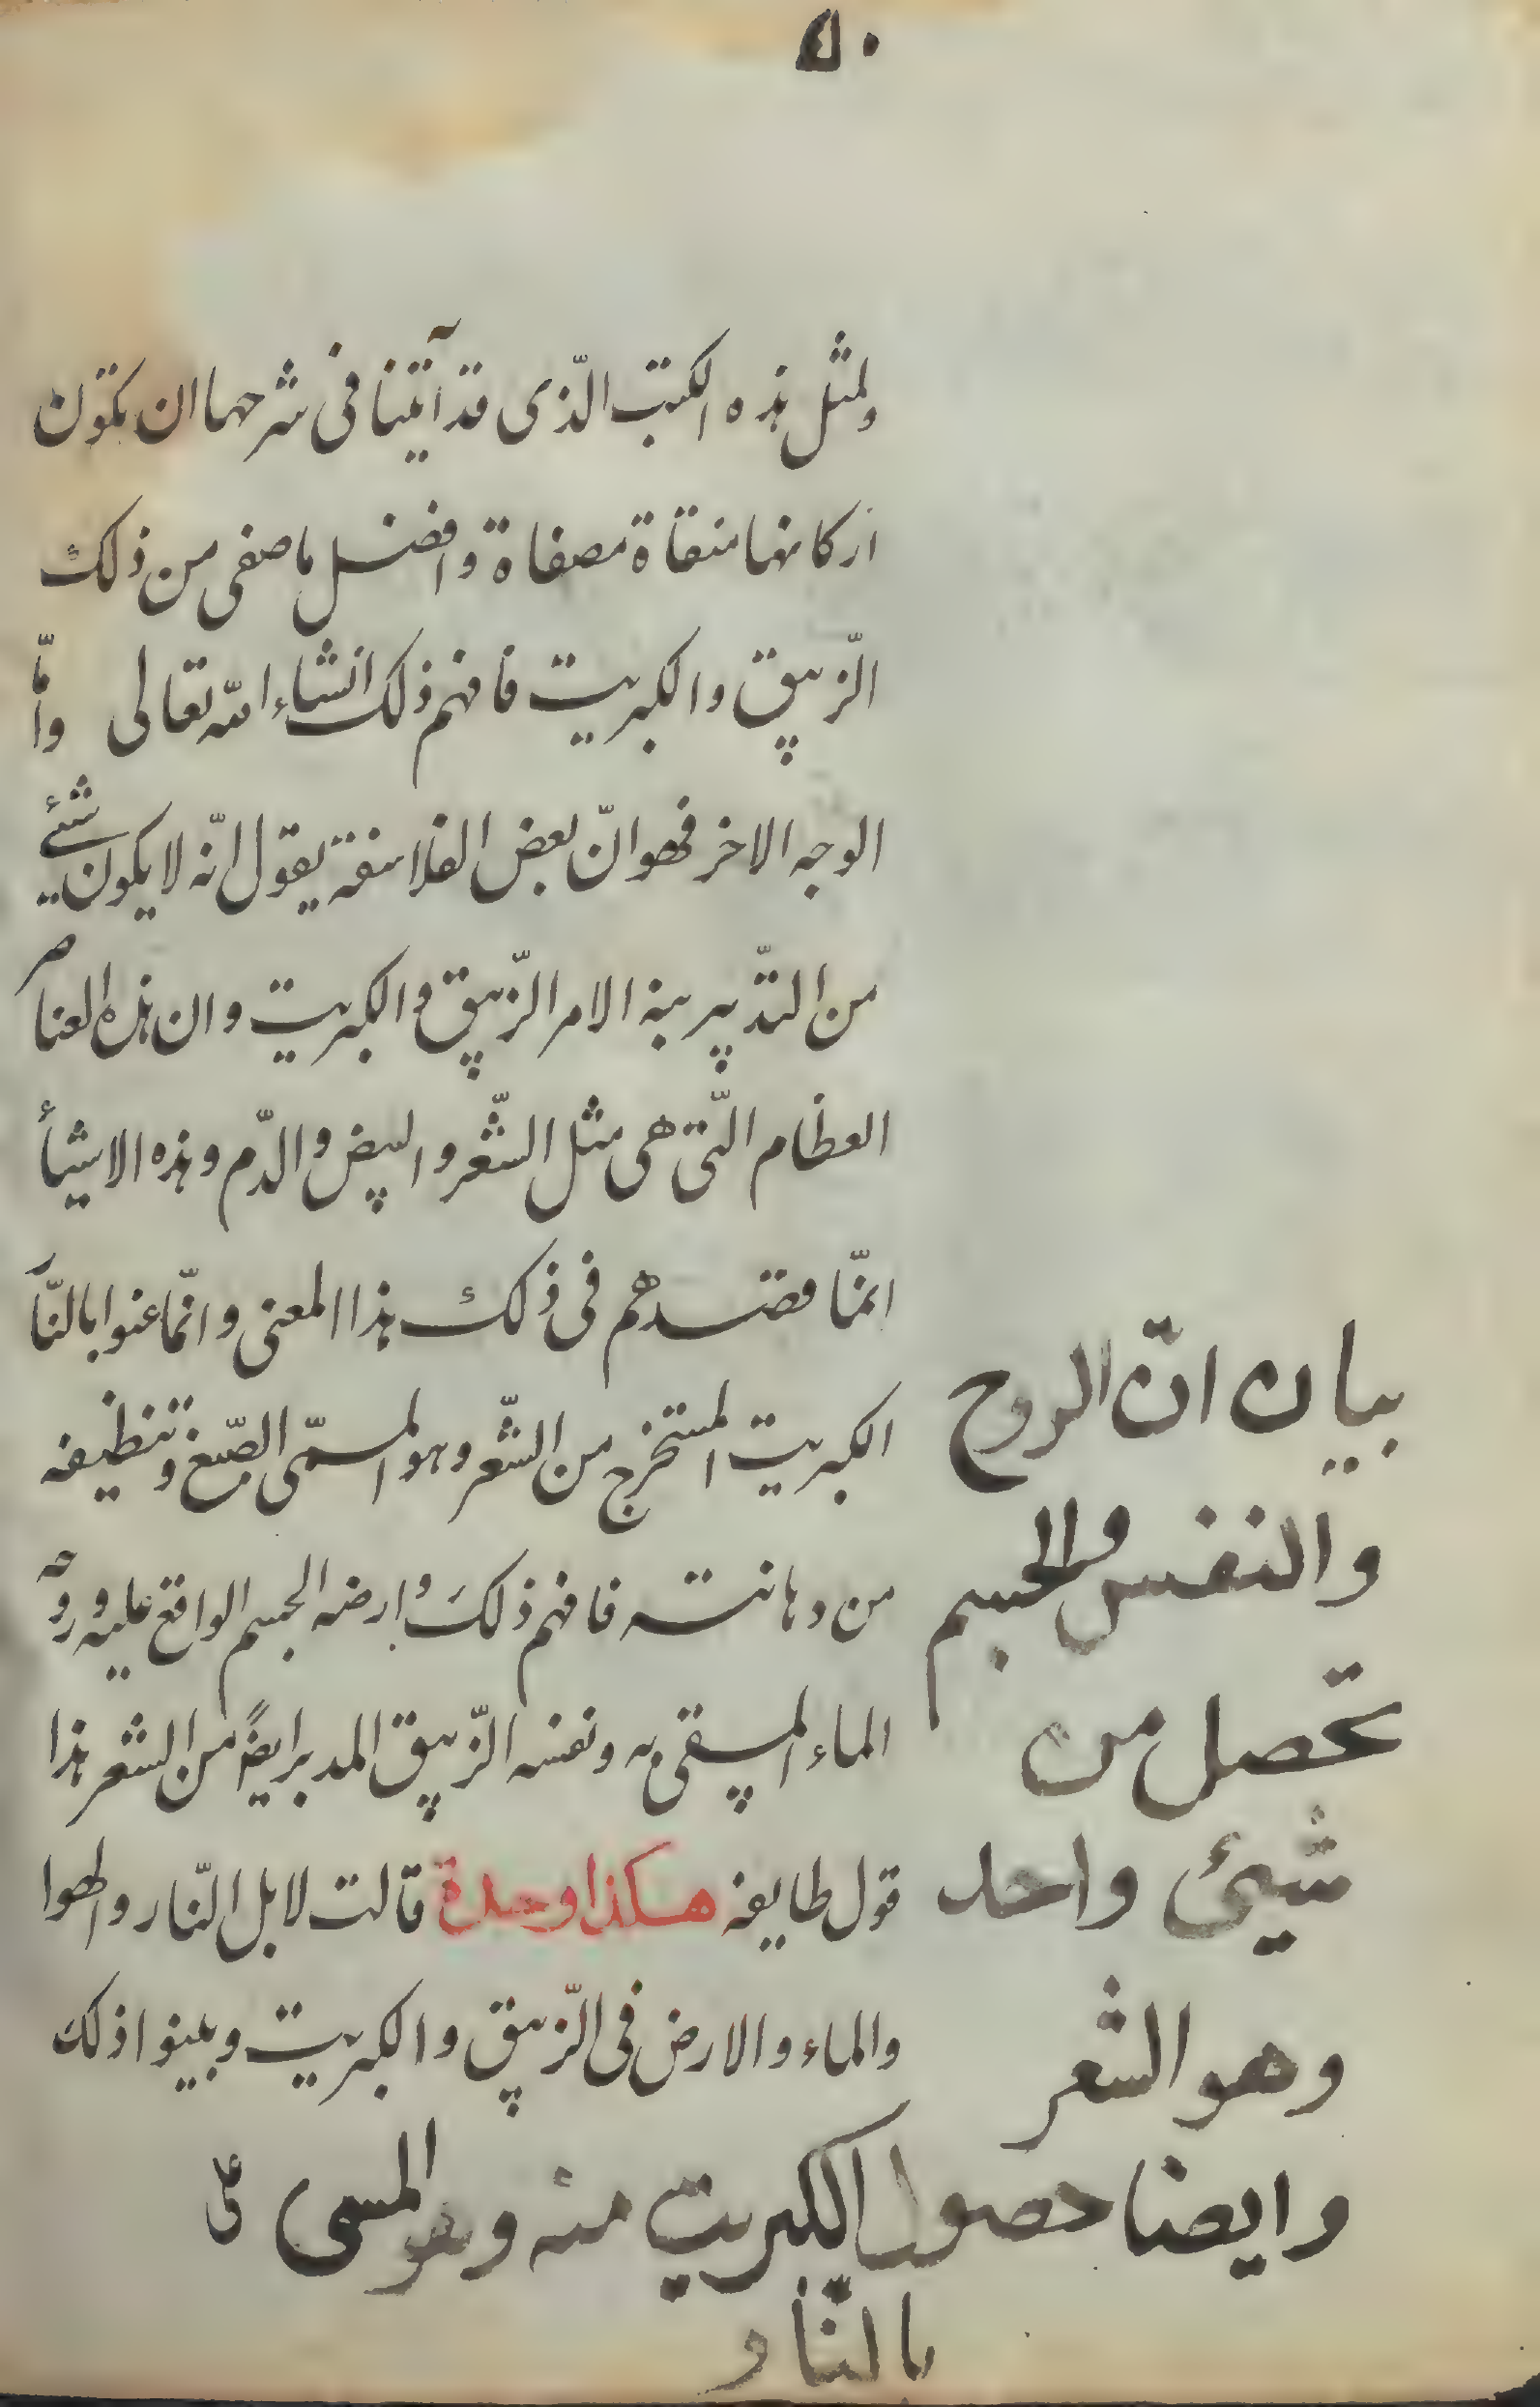 ٤٠
ولمثل هذه الكتب الّذى قد آتينا فى شرحها ان يكون
اركانها منقاة مصفاة وافضل ما صفى من ذلك
الزّيبق والكبريت فافهم ذلك انشاء اللّه تعالى وامّا
الوجه الاخر فهو انّ بعض الفلاسفة يقول انّه لا يكون شئ
من التدّبير بهذ الامر الزّيبق والكبريت وان هذه العناصر
العظام الّتى هى مثل الشّعر والبيض والدّم وهذه الاشيأ
انمّا قصدهم فى ذلك هذا المعنى وانمّا عنوا بالنّار
الكبريت المستخرج من الشّعر وهو المسمّى الصّبغ وتنظيفه
من دهانته فافهم ذلك وارضه الجسم الواقع عليه وروحه
الماء المسقى به ونفسه الزّيبق المدبر ايضاً من الشعر هذا
قول طايفه هكذا وحدة قالت لا بل النّار والهوا
والماء والارض فى الزّيبق والكبريت وبينوا ذلك
بيان انّ الروح
والنفس والجسم
تحصل من
شيئ واحد
وهو الشعر
وايضا حصول الكبريت منه وهو المسمى
بالنّار